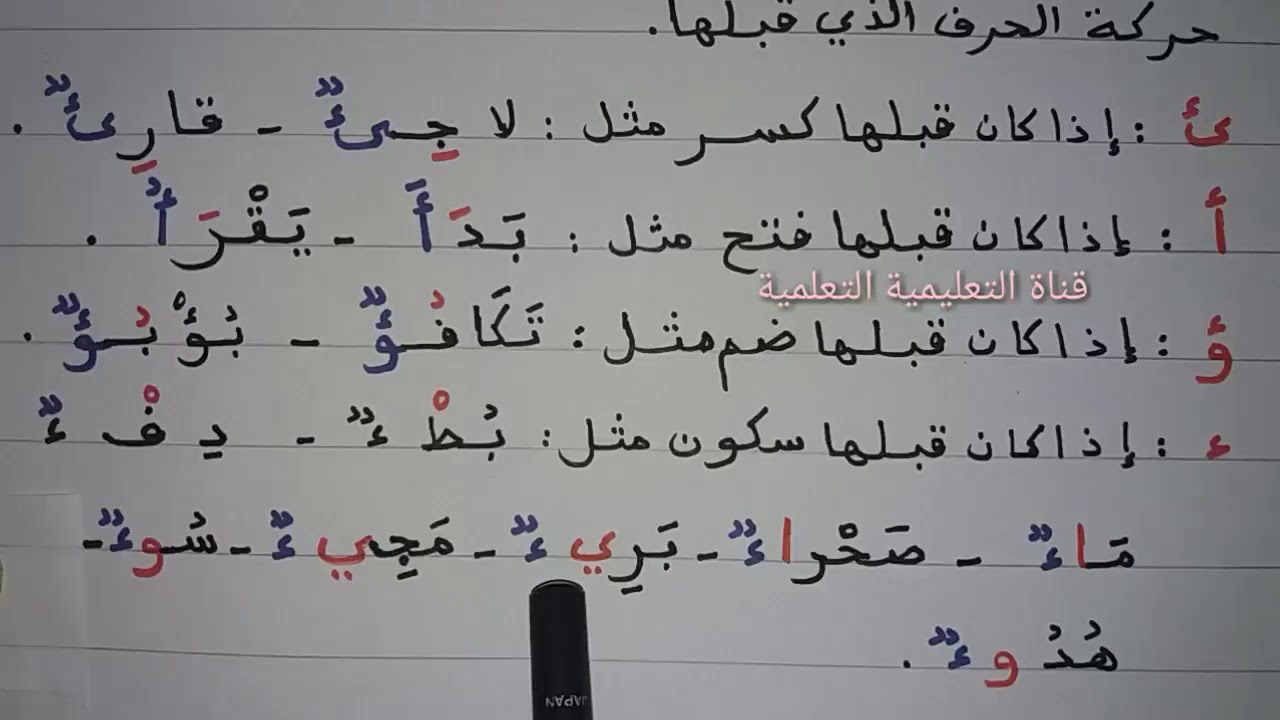 حركة الحرف الذي قبلها.
ئ : إذا كان قبلها كسر مثل : لا جِئٌ - قارِئٌ .
أ : إذا كان قبلها فتح مثل : بَدَأَ - يَقْرَأُ .
قناة التعليمية التعلمية
ؤ : إذا كان قبلها ضم مثل : تَكَافُؤٌ - بُؤْبُؤٌ .
ء : إذا كان قبلها سكون مثل : بُطْءٌ - دِفْءٌ
مَاءٌ - صَحْراءٌ - بَرِيءٌ - مَجِيءٌ - سُوءٌ -
هُدُوءٌ .
JAPAN